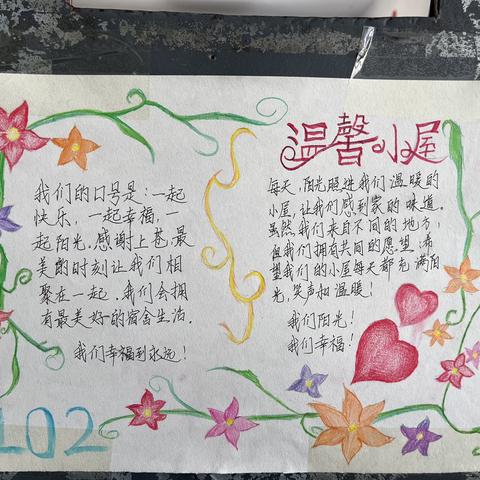 温馨小屋
我们的口号是：一起
快乐，一起幸福，一
起阳光.感谢上苍.最
美的时刻让我们相
聚在一起.我们会拥
有最美好的宿舍生活.
我们幸福到永远！
每天,阳光照进我们温暖的
小屋,让我们感到家的味道.
虽然我们来自不同的地方,
但我们拥有共同的愿望.希
望我们的小屋每天都充满阳
光,笑声和温暖！
我们阳光！
我们幸福！
102